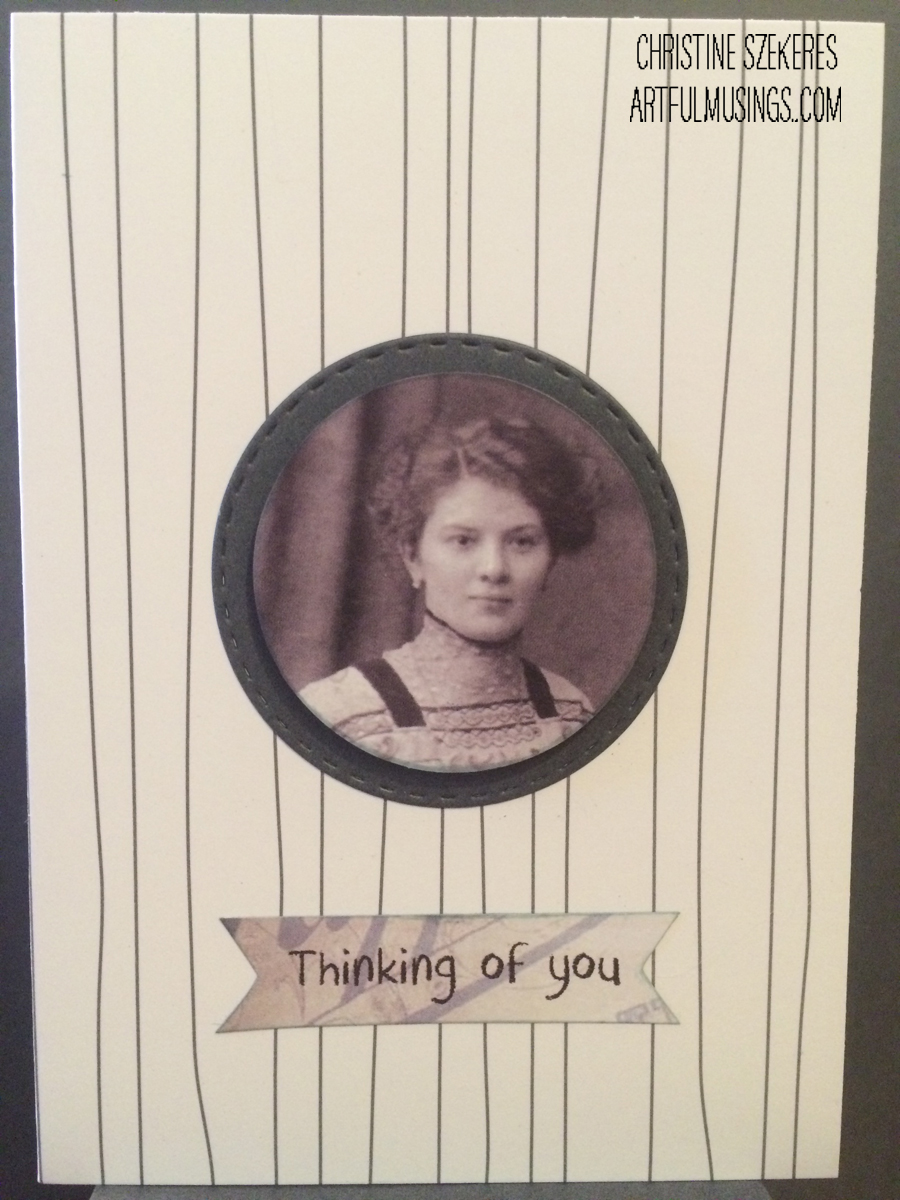 CHRISTINE SZEKERES
ARTFULMUSINGS.COM
Thinking of you